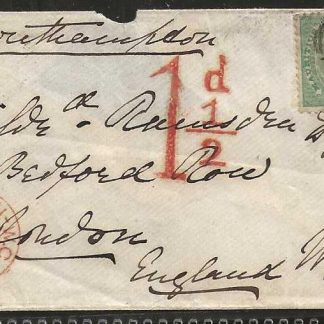 outhampton
1 d 1/2
Ramsden
Bedford Row
London
England W